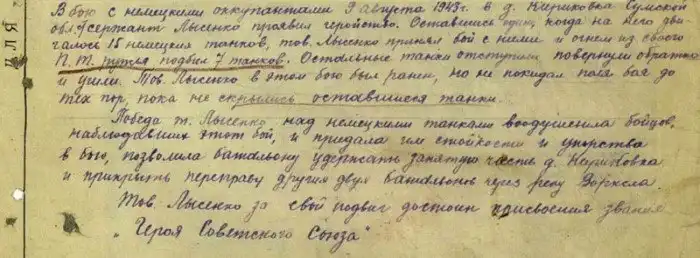 В бою с немецкими оккупантами 9 августа 1943г. в д. Кириковка Сумской
обл. сержант Лысенко проявил геройство. Оставшись один, когда на него дви
галось 15 немецких танков, тов. Лысенко принял бой с ними и огнем из своего
П.Т. ружья подбил 7 танков. Остальные танки отступили, повернули обратно
и ушли. Тов. Лысенко в этом бою был ранен, но не покидал поля боя до
тех пор, пока не скрылись оставшиеся танки.
Победа т. Лысенко над немецкими танками воодушевила бойцов,
наблюдавших этот бой, и придала им стойкости и упорства
в бою, позволила батальону удержать занятую часть д. Кириковка
и прикрыть переправу других двух батальонов через реку Ворскла
Тов. Лысенко за свой подвиг достоин присвоения звания
„Героя Советского Союза"